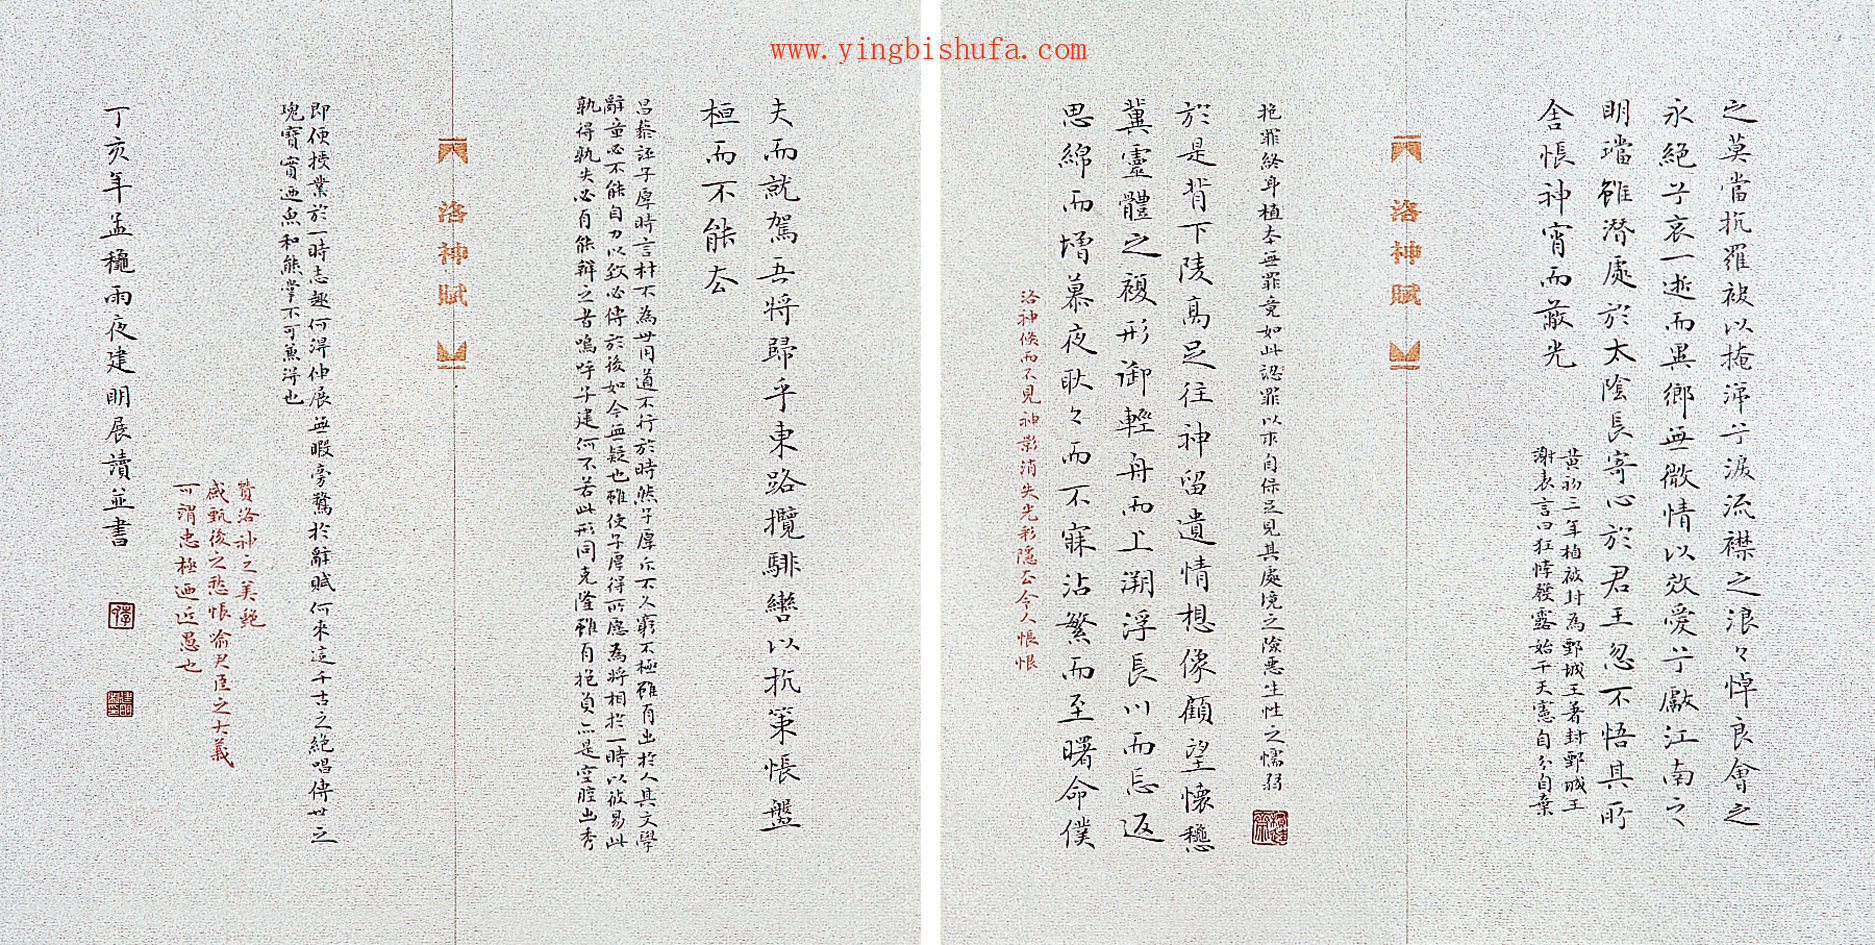 www.yingbishufa.com
之莫當抗羅袂以掩涕兮淚流襟之浪々悼良會之
永絕兮哀一逝而異鄉無微情以效愛兮獻江南之
明璫雖潛處於太陰長寄心於君王忽不悟其所
舍悵神宵而蔽光
黃初三年植被封為鄄城王著封鄄城王
謝表言曰狂悖發露始干天憲自分自棄
洛神賦
抱罪終身植本無罪竟如此認罪以求自保足見其處境之險惡生性之懦弱
於是背下陵高足往神留遺情想像顧望懷愁
冀靈體之複形御輕舟而上溯浮長川而忘返
思綿而增慕夜耿々而不寐沾繁霜而至曙命僕
洛神倏而不見神影消失光彩隱去令人悵恨
夫而就駕吾將歸乎東路攬騑轡以抗策悵盤
桓而不能去
昌黎誌子厚時言材不為世用道不行於時然子厚斥不久窮不極雖有出於人其文學
辭章必不能自力以致必傳於後如今無疑也雖使子厚得所願為將相於一時以彼易此
孰得孰失必有能辨之者嗚呼子建何不若此形同克隆雖有抱負亦是空腔出秀
洛神賦
即便授業於一時志趣何得伸展無暇旁騖於辭賦何來這千古之絕唱傳世之
瑰寶實迺魚和熊掌不可兼得也
贊洛神之美艷
感甄後之愁悵喻君臣之大義
可謂忠極迺近愚也
丁亥年孟穐雨夜建明展讀並書